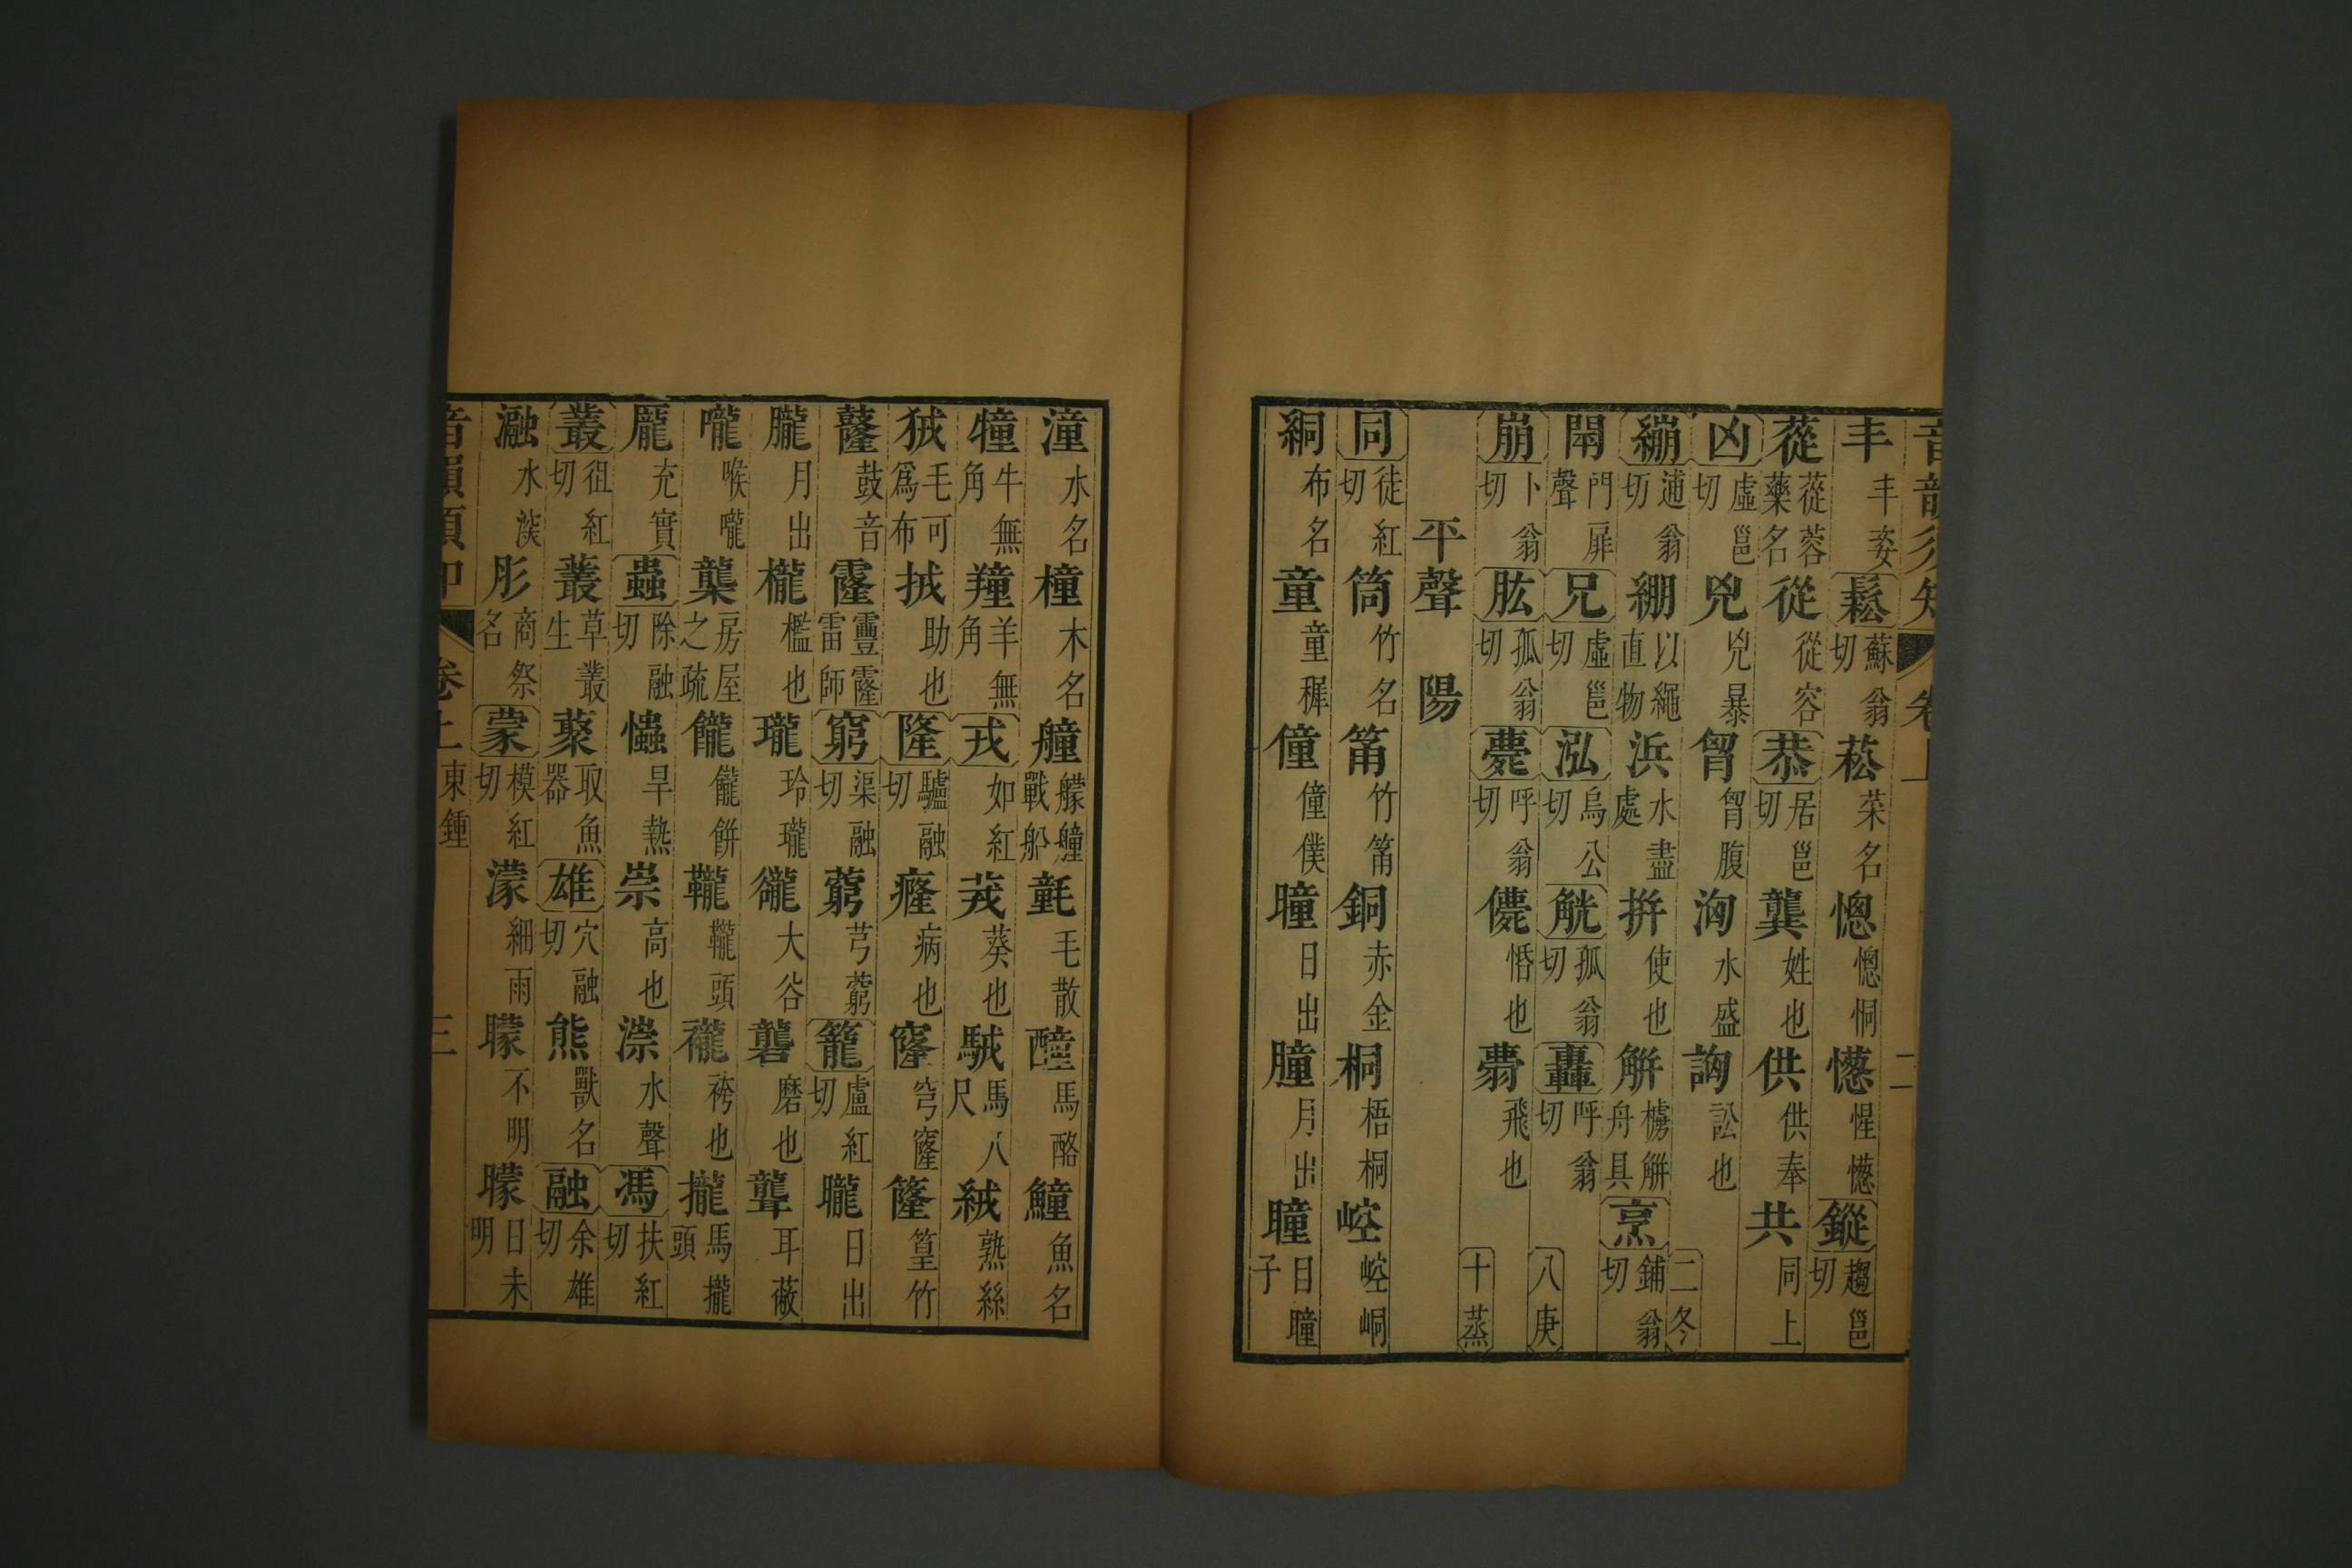 音韻須知 卷上 二
丰丰姿鬆蘇翁切菘菜名憁憁恫憽惺憽鏦趨邕切
蓯蓯蓉藥名從從容恭居邕切龔姓也供供奉共同上
凶虛邕切兇兇暴胷胷腹洶水盛訩訟也二冬
繃逋翁切綳以繩直物浜水盡處拼使也艕舟具烹鋪翁切
閛門扉聲兄虛邕切泓烏公切觥孤翁切轟呼翁切八庚
崩卜翁切肱孤翁切薨呼翁切儚惛也薨飛也十蒸
平聲 陽
同徒紅切筒竹名筩竹筩銅赤金桐梧桐崆崆峒
絧布名童童穉僮僮僕曈日出朣月出瞳目瞳子
潼水名橦木名艟艨艟戰船毛散馬酪鱸魚名
犝牛無角羵羊無角戎如紅切茙葵也駥馬八尺絨熟絲
毧毛可為布拔助也隆驢融切癃病也窿穹窿篭篁竹
鼕鼓音靊霻霳雷師窮渠融切藭芎藭籠盧紅切曨日出
朧月出櫳檻也瓏玲瓏谾大谷礱磨也聾耳蔽
嚨喉嚨龒房屋之疏餅鞴頭襱袴也攏馬攏頭
龐充實蟲除融切爞旱熱崇高也漴水聲馮扶紅切
叢徂紅切藂草叢生取魚器雄穴融切熊獸名融余雄切
瀜水深肜商祭名蒙模紅切濛細雨朦不明曚日未明
音韻須知 卷上 東鍾 三